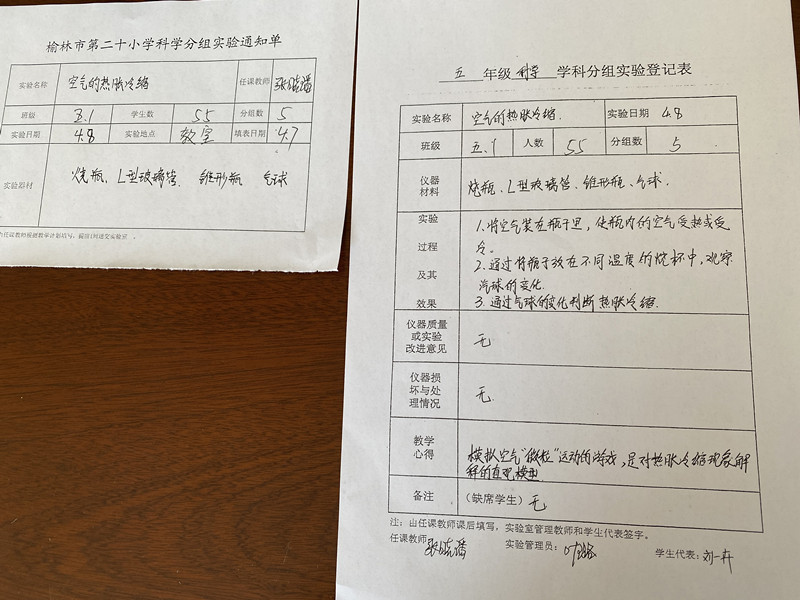 榆林市第二十小学科学分组实验通知单
实验名称 空气的热胀冷缩 任课教师
班级 五.1 学生数 55 分组数 5
实验日期 4.8 实验地点 教室 填表日期 4.7
实验器材 烧瓶、L型玻璃管、锥形瓶 气球
五 年级 科学 学科分组实验登记表
实验名称 空气的热胀冷缩. 实验日期 4.8
班级 五.1 人数 55 分组数 5
仪器材料 烧瓶、L型玻璃管、锥形瓶、气球.
实验过程及其效果
1.将空气装在瓶子里,使瓶内的空气受热或受
冷。
2.通过将瓶子放在不同温度的烧杯中,观察
汽球的变化.
3.通过气球的变化判断热胀冷缩.
仪器质量或实验改进意见 无
仪器损坏与处理情况 无.
教学心得 模拟空气“微粒”运动的游戏,是对热胀冷缩现象解
释的直观模型
备注 (缺席学生) 无
注:由任课教师课后填写,实验室管理教师和学生代表签字。
任课教师 实验管理员: 学生代表: 刘一卉